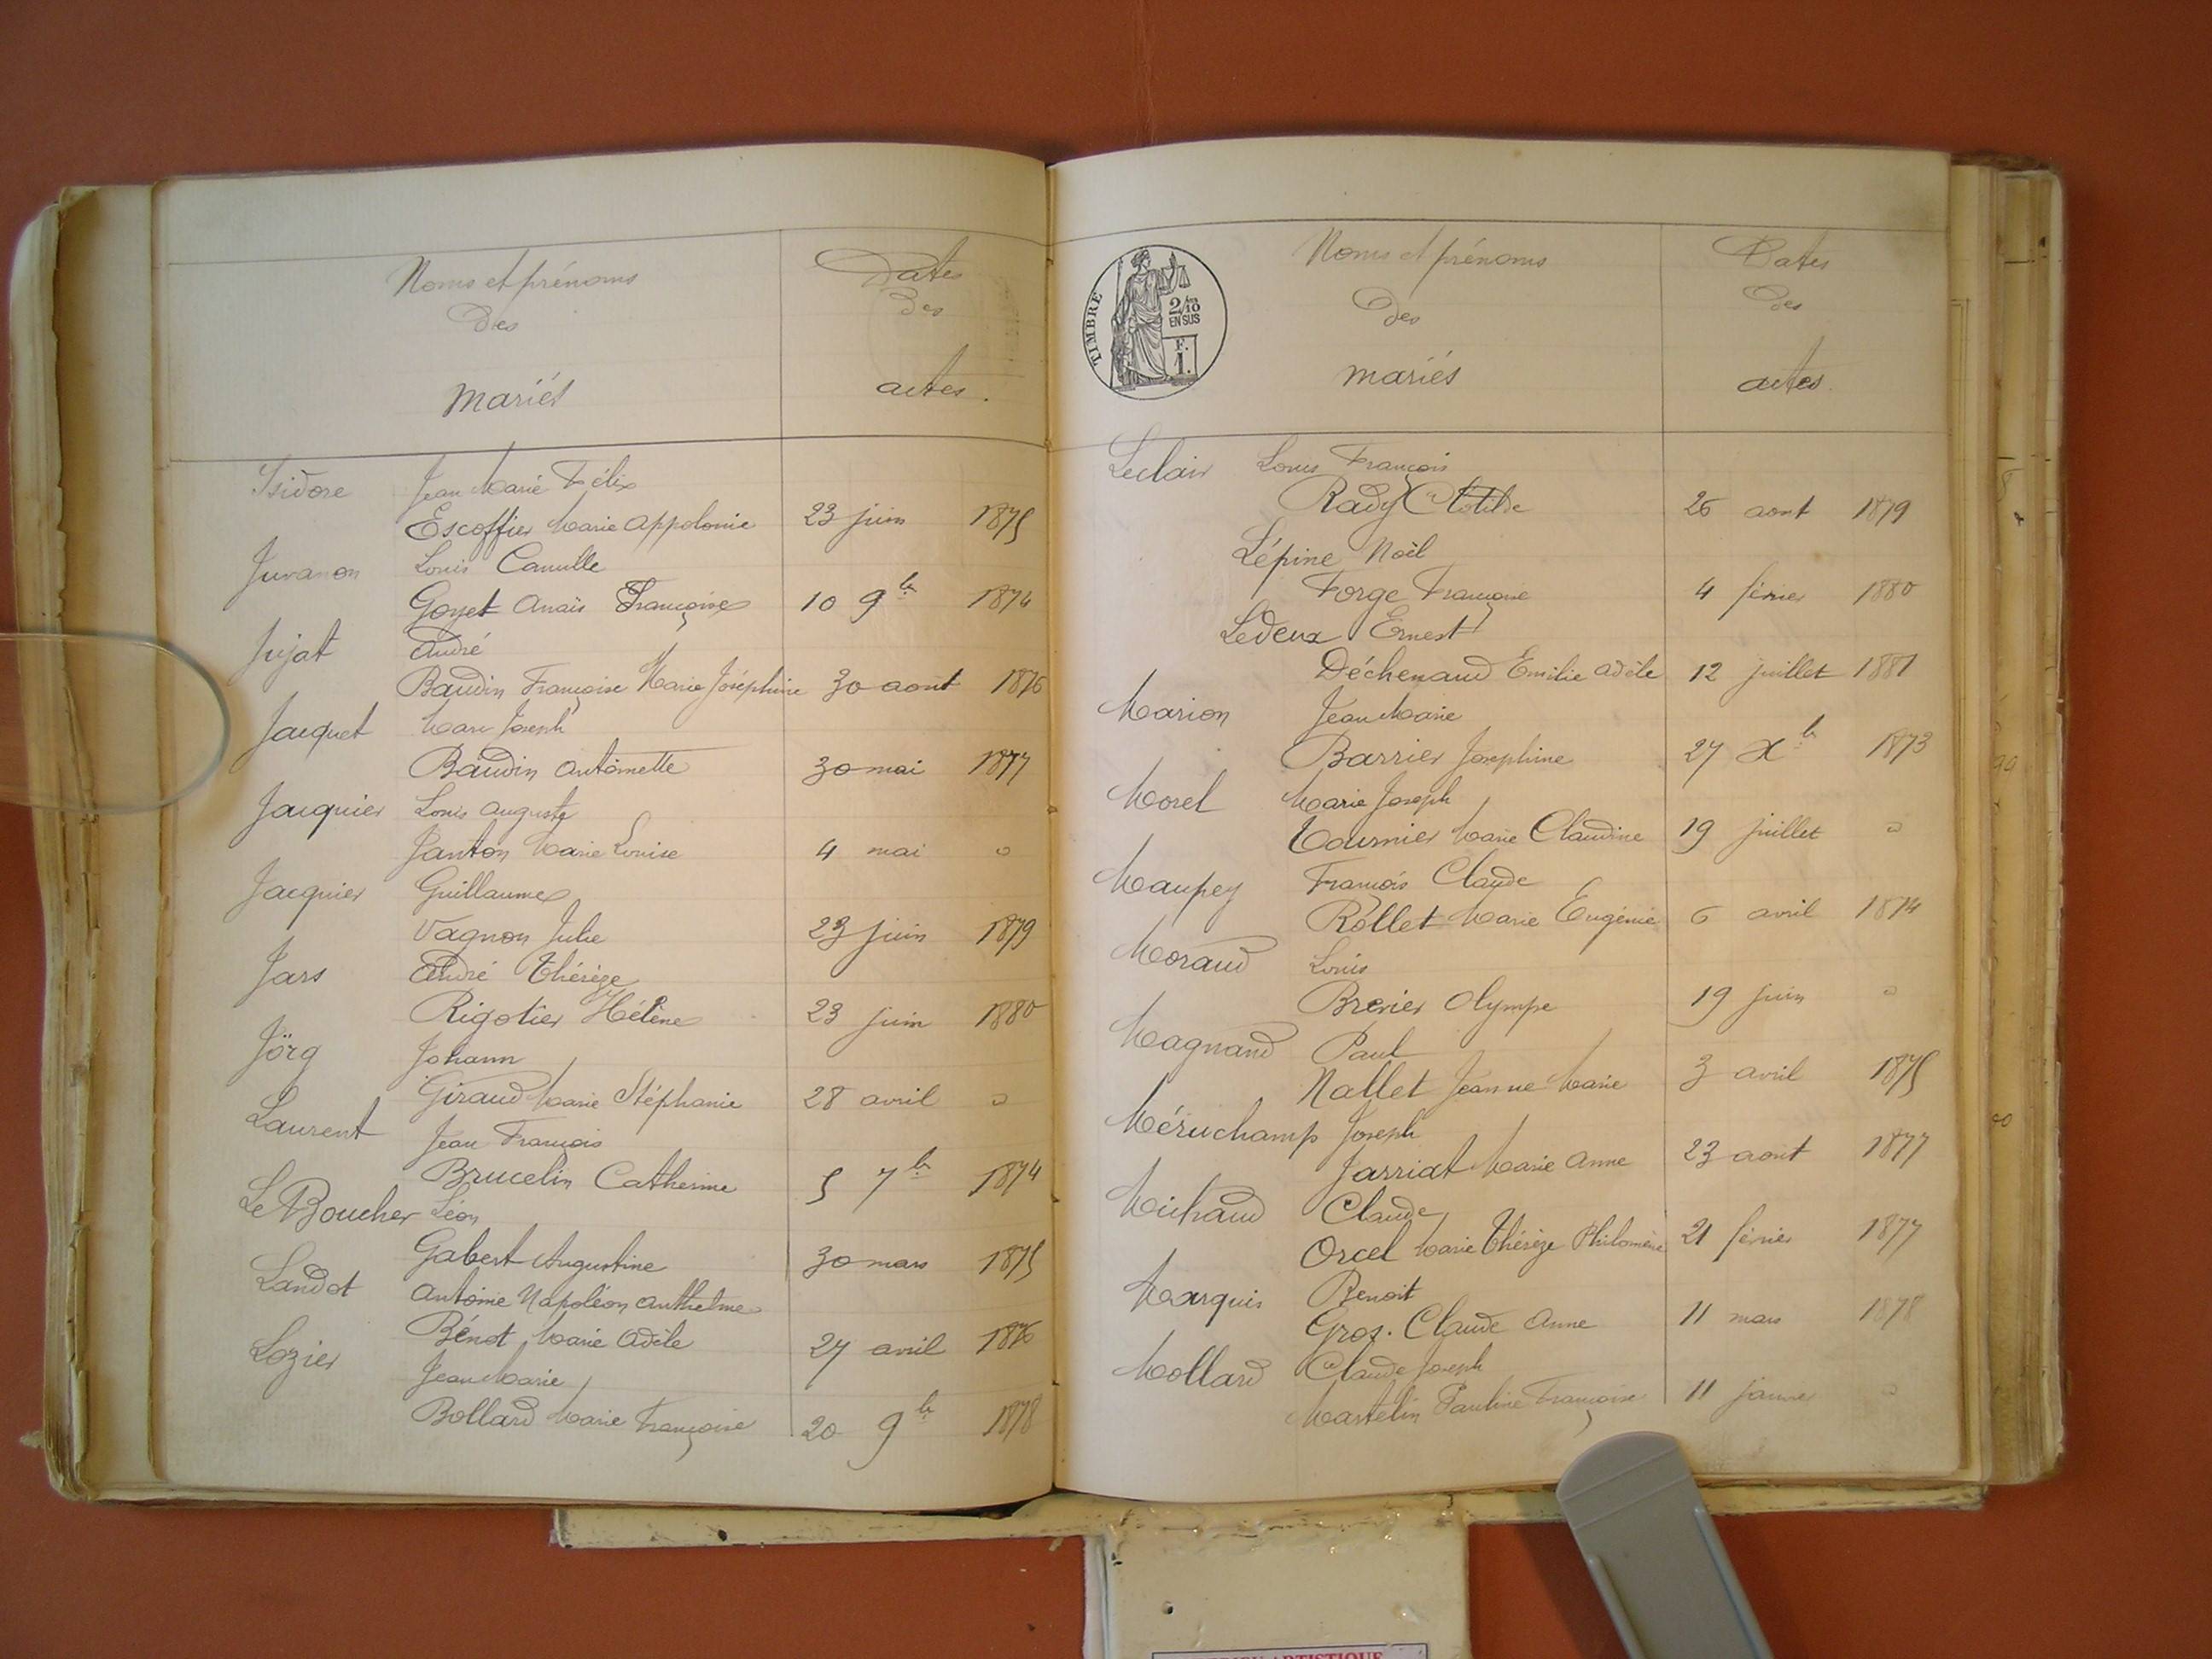 Noms et prénoms
des
mariés
Dates
des
actes.
Isidore Jean Marie Félix
Escoffier Marie Appolonie 23 juin 1875
Juvanon Louis Camille
Goyet Anaïs Françoise 10 9bre 1874
Jujat André
Baudin Françoise Marie Joséphine 30 aout 1876
Jacquet Marc Joseph
Baudin Antoinette 30 mai 1877
Jacquier Louis Auguste
Janton Marie Louise 4 mai d
Jacquier Guillaume
Vagnon Julie 23 juin 1879
Jars André Thérèze
Rigotier Hélène 23 juin 1880
Jörg Johann
Giraud Marie Stéphanie 28 avril d
Laurent Jean François
Brucelin Catherine 5 7bre 1874
Le Boucher Léon
Gabert Augustine 30 mars 1875
Landot Antoine Napoléon Anthelme
Bénot Marie Adèle 27 avril 1876
Lozier Jean Marie
Bollard Marie Françoise 20 9bre 1878
TIMBRE
2/10
EN SUS
F.
1.
Noms et prénoms
des
mariés
Dates
des
actes.
Leclair Louis François
Rady Clotilde 26 aout 1879
Lépine Noël
Forge Françoise 4 février 1880
Ledeux Ernest
Déchenaud Emilie Adèle 12 juillet 1881
Marion Jean Marie
Barrier Josephine 27 Xbre 1873
Morel Marie Joseph
Tournier Marie Claudine 19 juillet d
Maupey François Claude
Rollet Marie Eugénie 6 avril 1874
Moraud Louis
Brenier Olympe 19 juin d
Magnand Paul
Nallet Jeanne Marie 3 avril 1875
Méruchamp Joseph
Jarriat Marie Anne 23 aout 1877
Michaud Claude
Orcel Marie Thérèze Philomène 21 février 1877
Marquis Benoit
Gros. Claude Anne 11 mars 1878
Mollard Claude Joseph
Martelin Pauline Françoise 11 janvier d